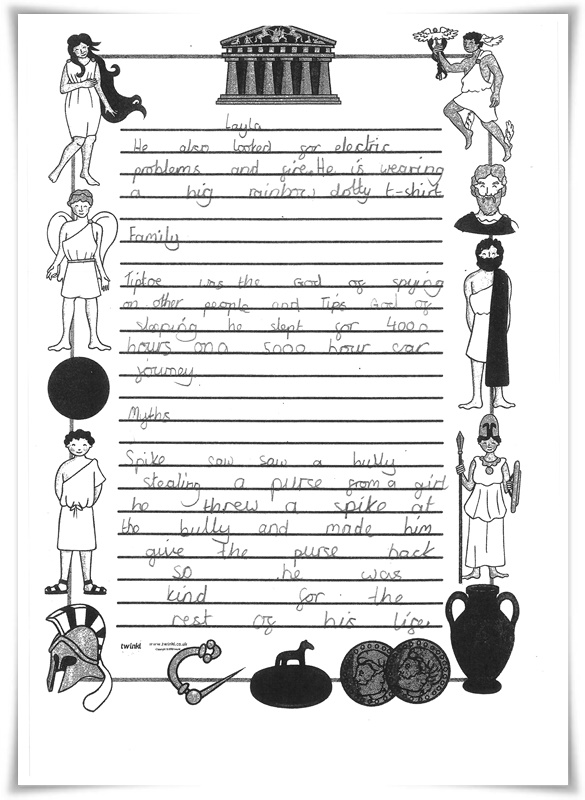 Layla
He also looked for electric
problems and fire. He is wearing
a big rainbow dotty t-shirt
Family
Tiptoe was the God of spying
on other people and Tips God of
sleeping he slept for 4000
hours on a 5000 hour car
journey
Myths
Spike saw saw a bully
stealing a purse from a girl
he threw a spike at
the bully and made him
give the purse back
so he was
kind for the
rest of his life.
twinkl www.twinkl.co.uk